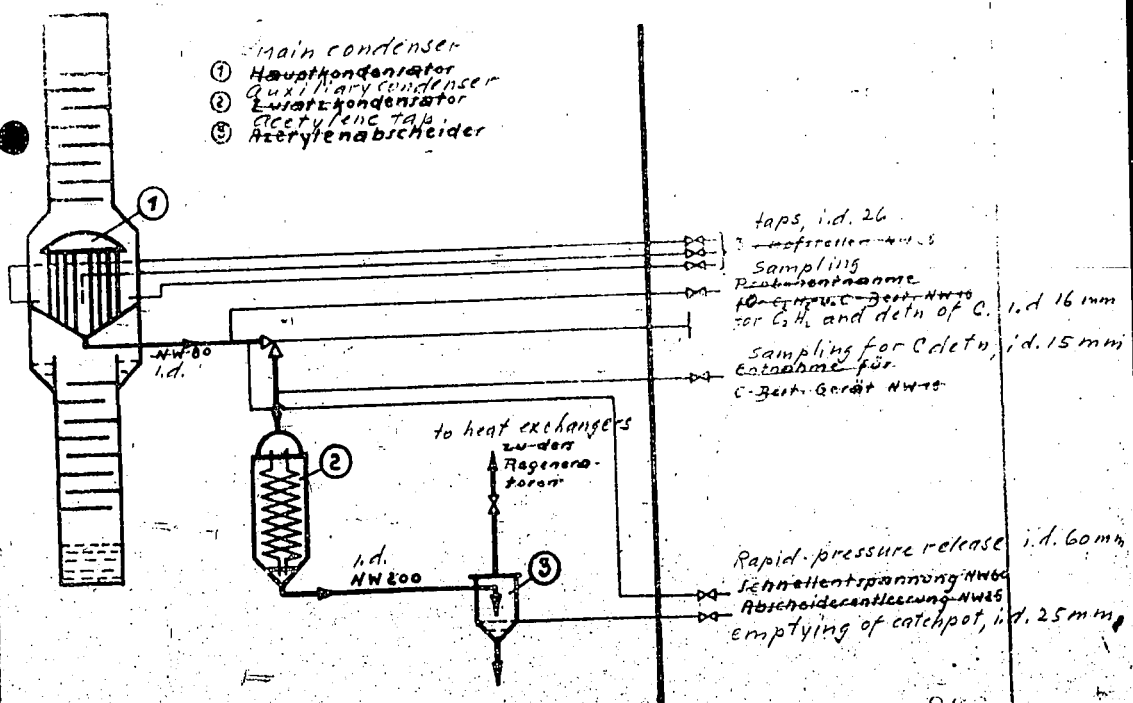 Main condenser
① Hauptkondensator
Auxiliary condenser
② Zusatzkondensator
Acetylene tap
③ Azetylenabscheider
1
taps, i.d. 26
Sampling
Probenentnahme
for C₂H₂ and detn of C. i.d 16 mm
NW 80
i.d.
Sampling for C detn, i.d. 15 mm
Entnahme für
C-Best. Gerät NW 15
to heat exchangers
zu den
Regenera-
toren
2
i.d.
NW 200
3
Rapid-pressure release i.d. 60 mm
Schnellentspannung NW 60
Abscheiderentleerung NW 25
emptying of catchpot, i.d. 25 mm